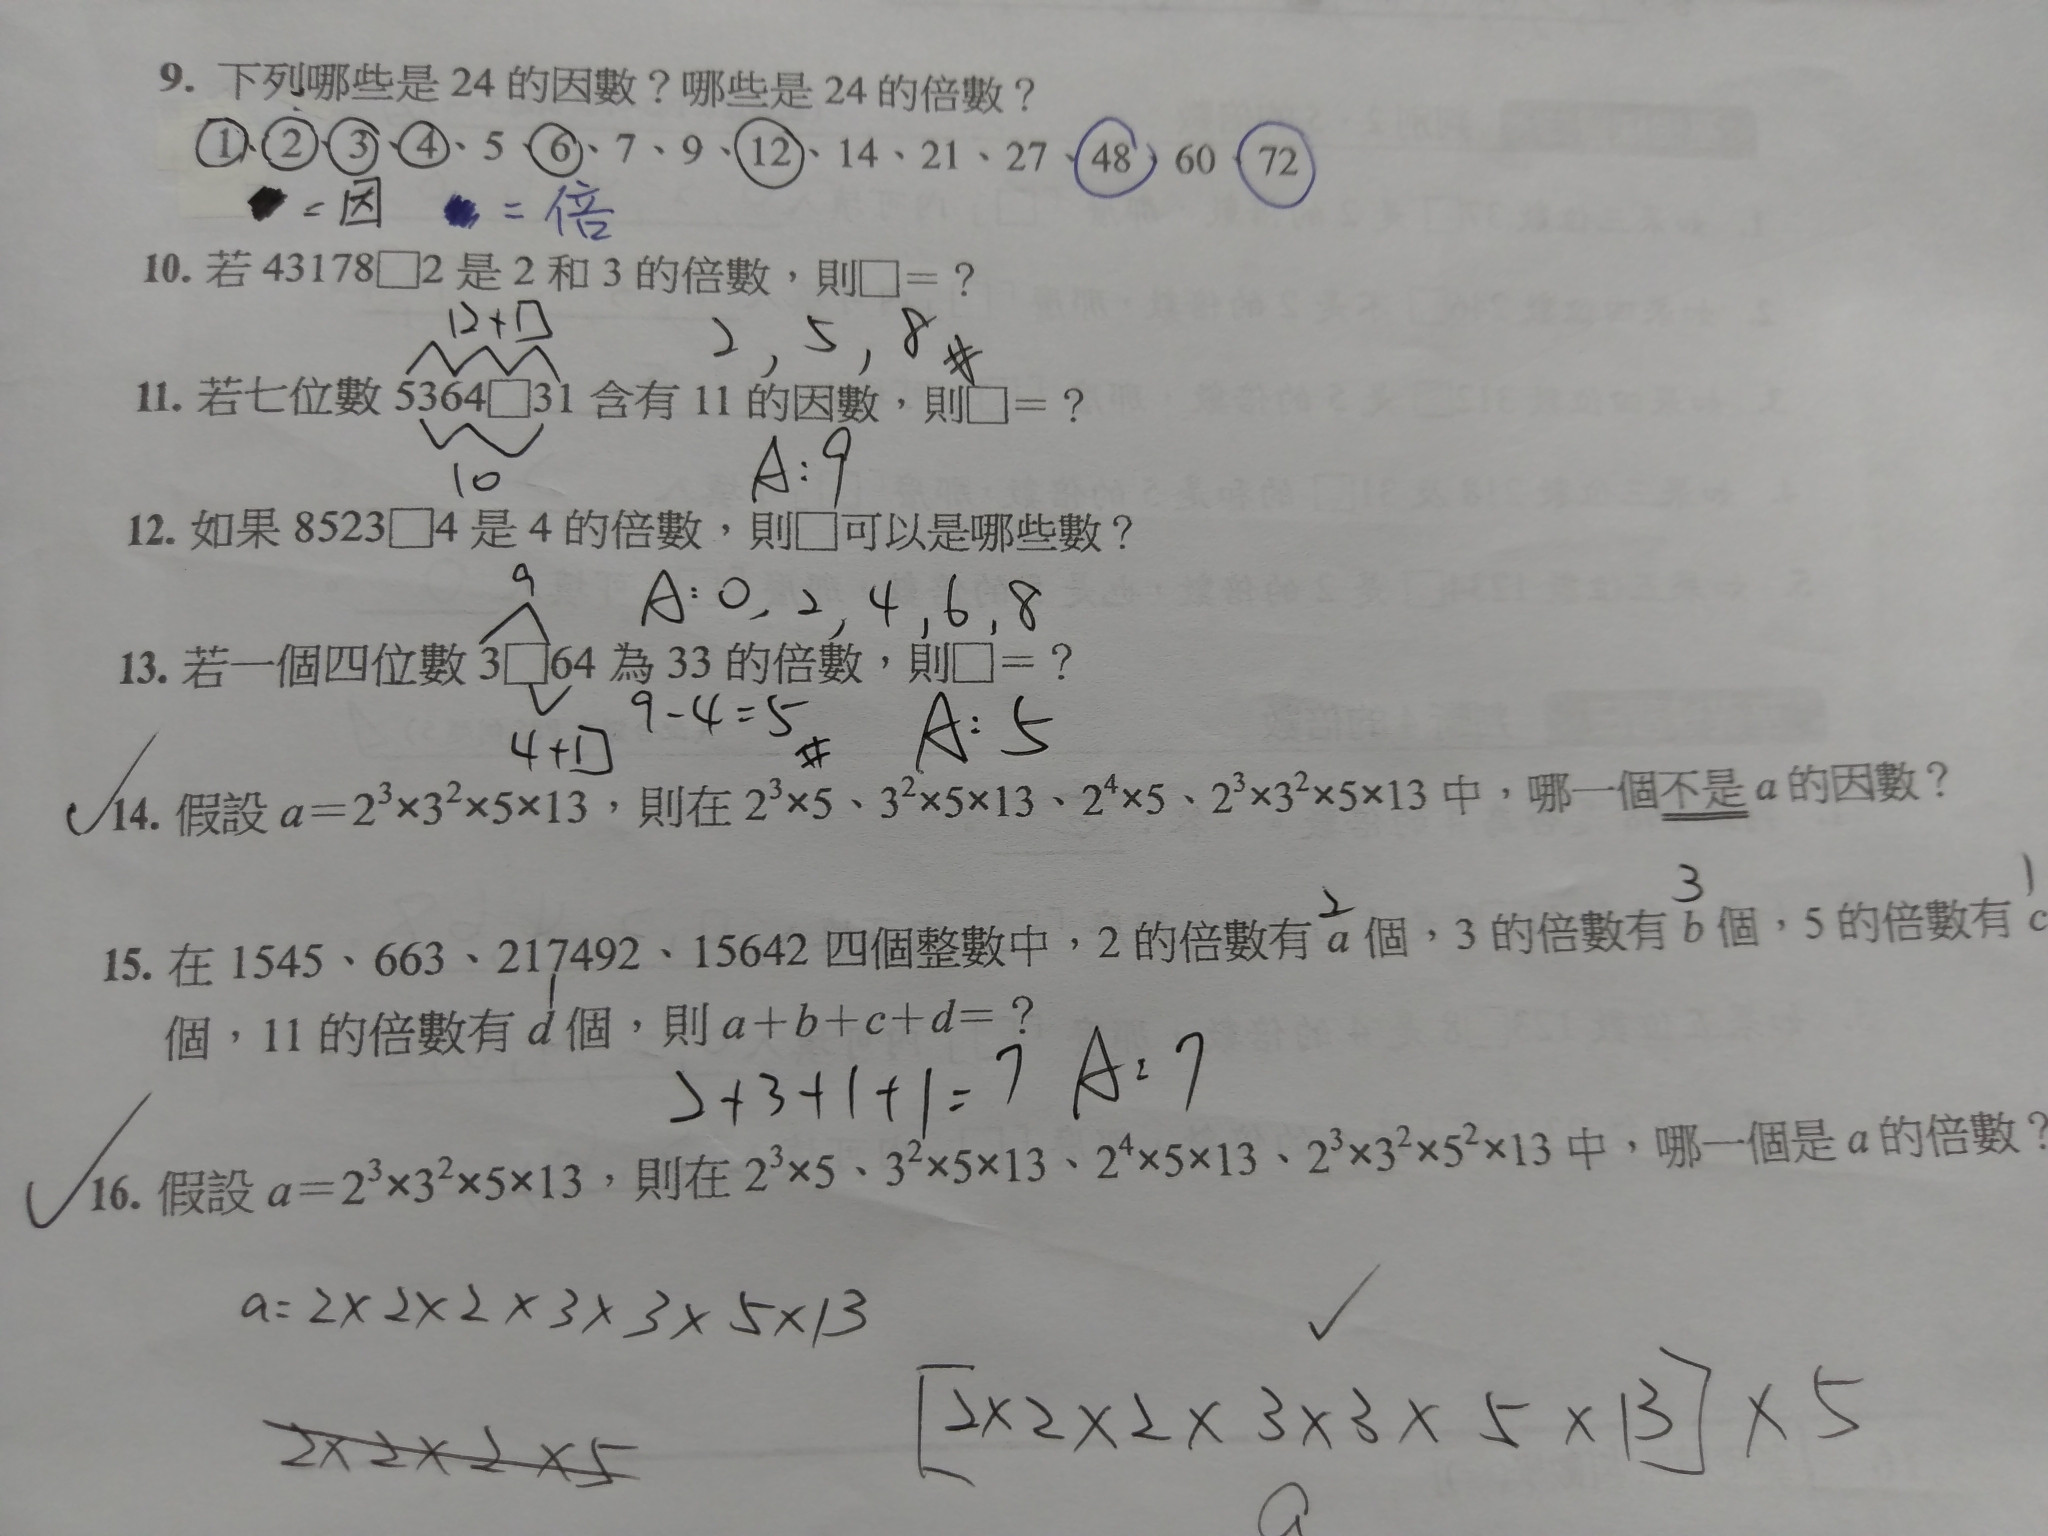 9. 下列哪些是 24 的因數？哪些是 24 的倍數？
1、2、3、4、5、6、7、9、12、14、21、27、48、60、72
= 因 = 倍
10. 若 43178□2 是 2 和 3 的倍數，則□=？
12+□ 2, 5, 8 #
11. 若七位數 5364□31 含有 11 的因數，則□=？
10 A:9
12. 如果 8523□4 是 4 的倍數，則□可以是哪些數？
9 A:0, 2, 4, 6, 8
13. 若一個四位數 3□64 為 33 的倍數，則□=？
4+□ 9-4=5 # A:5
14. 假設 a=2³×3²×5×13，則在 2³×5、3²×5×13、2⁴×5、2³×3²×5×13 中，哪一個不是 a 的因數？
2 3 1
15. 在 1545、663、217492、15642 四個整數中，2 的倍數有 a 個，3 的倍數有 b 個，5 的倍數有 c
1
個，11 的倍數有 d 個，則 a+b+c+d=？
2+3+1+1=7 A:7
16. 假設 a=2³×3²×5×13，則在 2³×5、3²×5×13、2⁴×5×13、2³×3²×5²×13 中，哪一個是 a 的倍數？
a=2×2×2×3×3×5×13
2×2×2×5 [2×2×2×3×3×5×13]×5
a